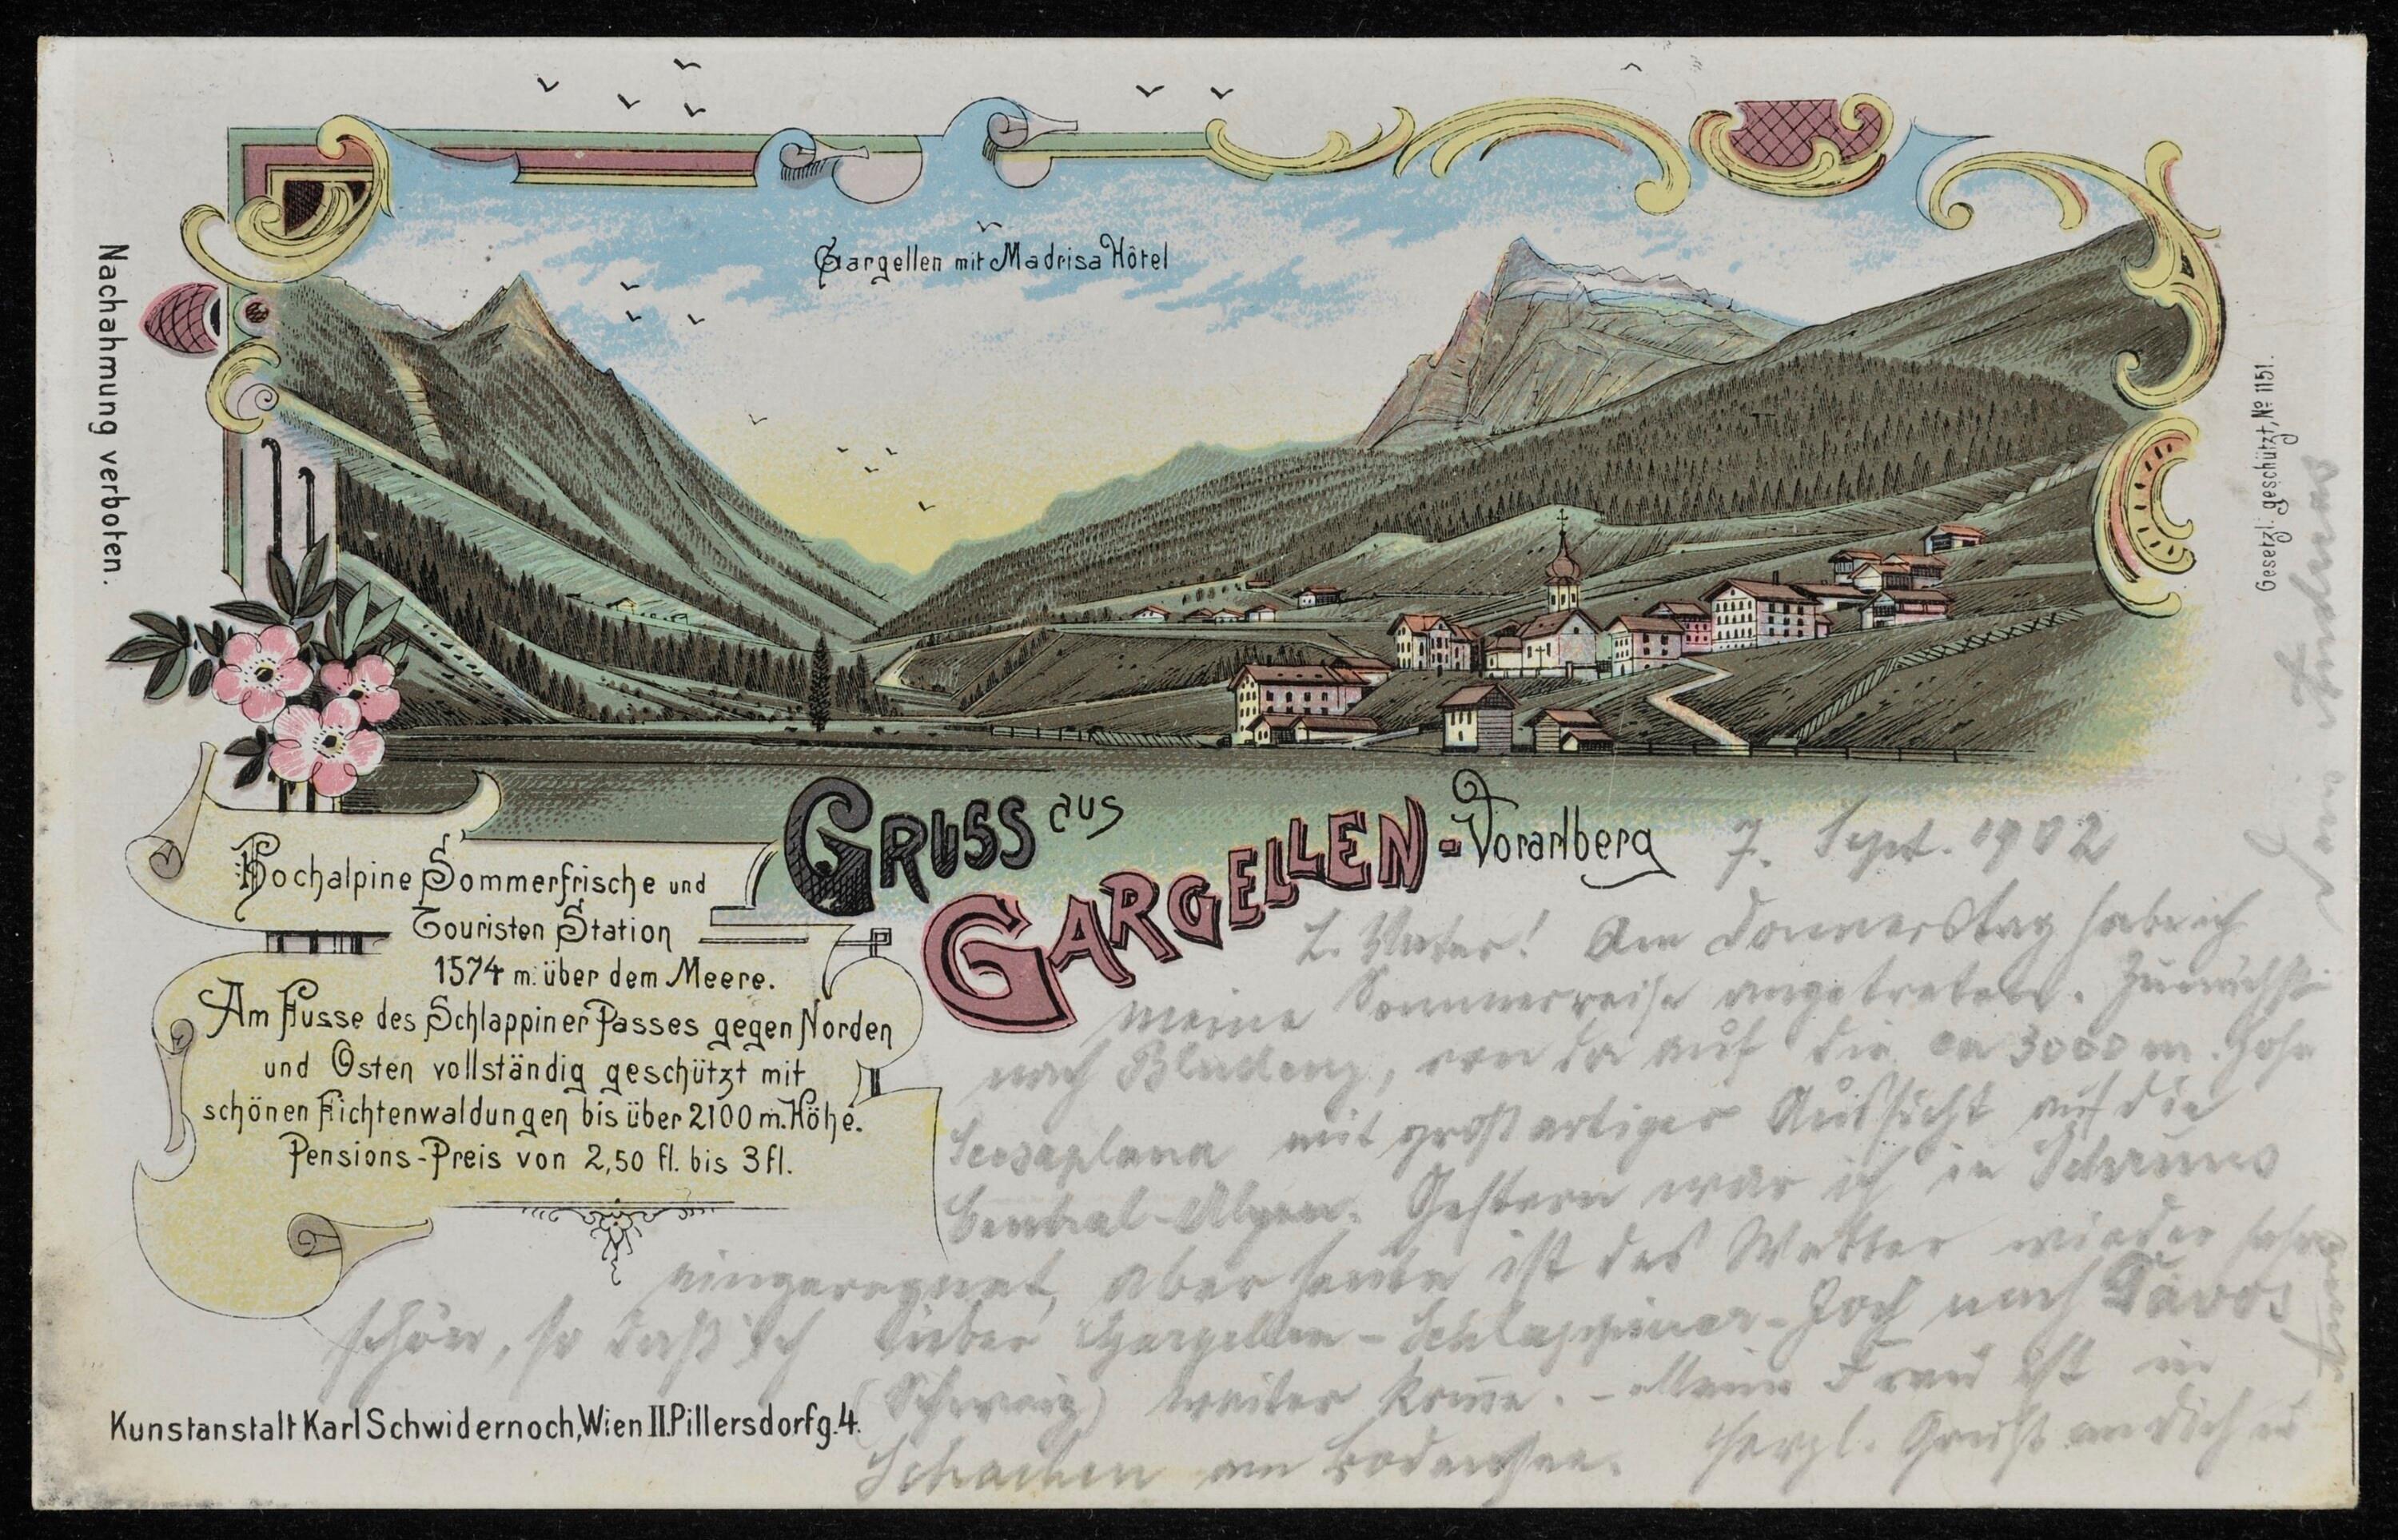 Gargellen mit Madrisa Hôtel
Nachahmung verboten.
Gesetzl. geschützt, No 1151.
GRUSS aus
GARGELLEN - Vorarlberg
Hochalpine Sommerfrische und
Touristen Station
1574 m. über dem Meere.
Am Fusse des Schlappiner Passes gegen Norden
und Osten vollständig geschützt mit
schönen Fichtenwaldungen bis über 2100 m. Höhe.
Pensions-Preis von 2,50 fl. bis 3 fl.
Kunstanstalt Karl Schwidernoch, Wien II. Pillersdorfg. 4.
7. Sept. 1902
L. Vater! Am Donnerstag habe ich
meine Sommerreise angetreten. Zunächst
nach Bludenz, von da auf die ca 3000 m. hohe
Scesaplana mit großartiger Aussicht auf die
Central-Alpen. Gestern war ich in Schruns
eingeregnet, aber heute ist das Wetter wieder sehr
schön, so daß ich über Gargellen - Schlappiner-Joch nach Davos
(Schweiz) weiter kome. - Meine Frau ist in
Schachen am Bodensee. Herzl. Gruß an Dich u